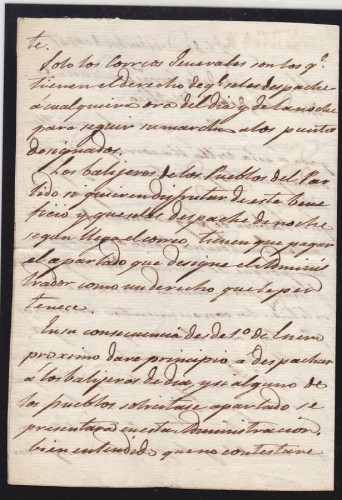 te.
Solo los Correos Generales son los q.e
tienen el derecho de q.e se les despache
a cualquiera ora del dia y de la noche
para seguir su marcha a los puntos
designados.
Los balijeros de los Pueblos del Par-
tido si quieren disfrutar de este bene
ficio y que se les despache de noche
segun llega el correo, tienen que pagar
el apartado que designe el Adminis
trador como un derecho que le per
tenece.
En su consecuencia desde 1.o de Enero
proximo dare principio a despachar
a los balijeros de dia, y si alguno de
los pueblos solicitase apartado se
presentara en esta Administracion,
bien entendido que no contestare